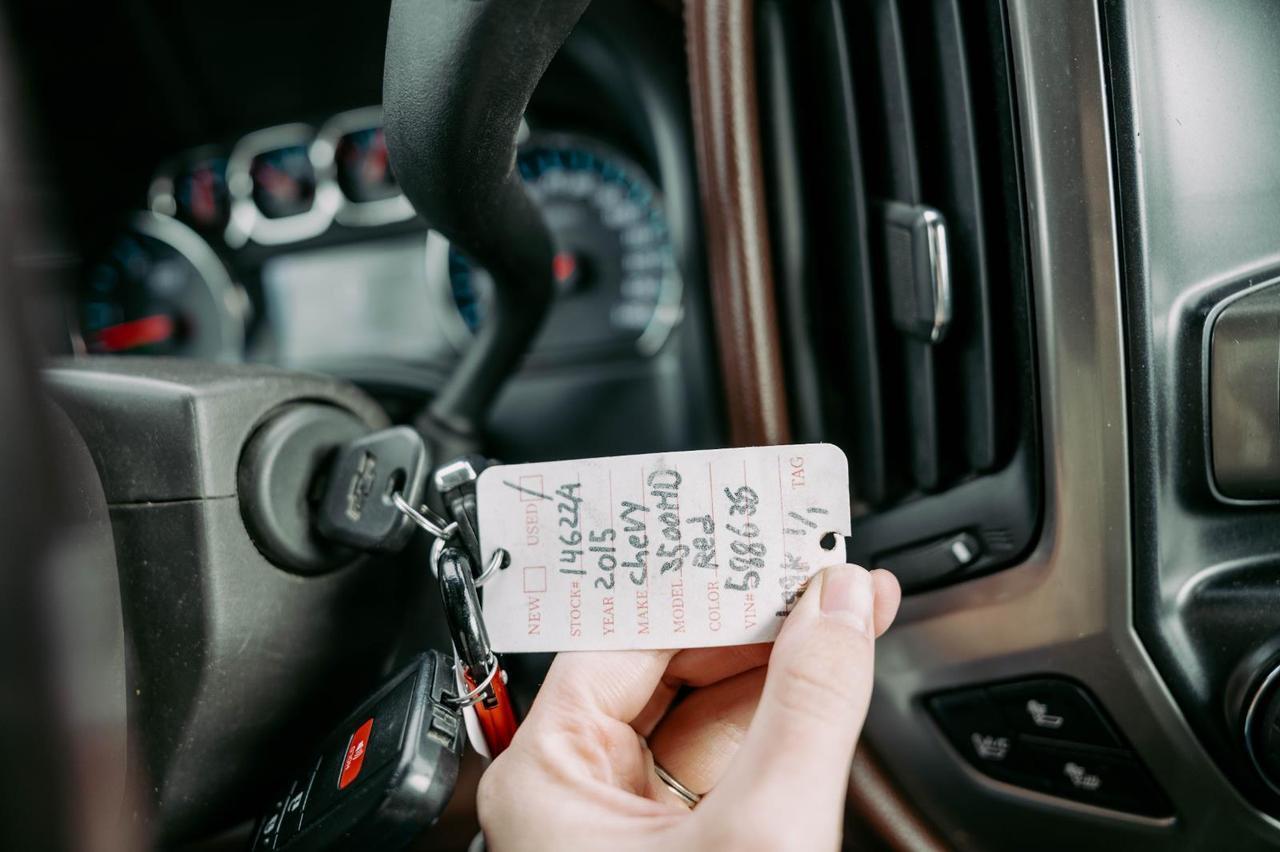 NEW USED
STOCK# 14622A
YEAR 2015
MAKE Chevy
MODEL 3500HD
COLOR Red
VIN# 588635
1/1 TAG